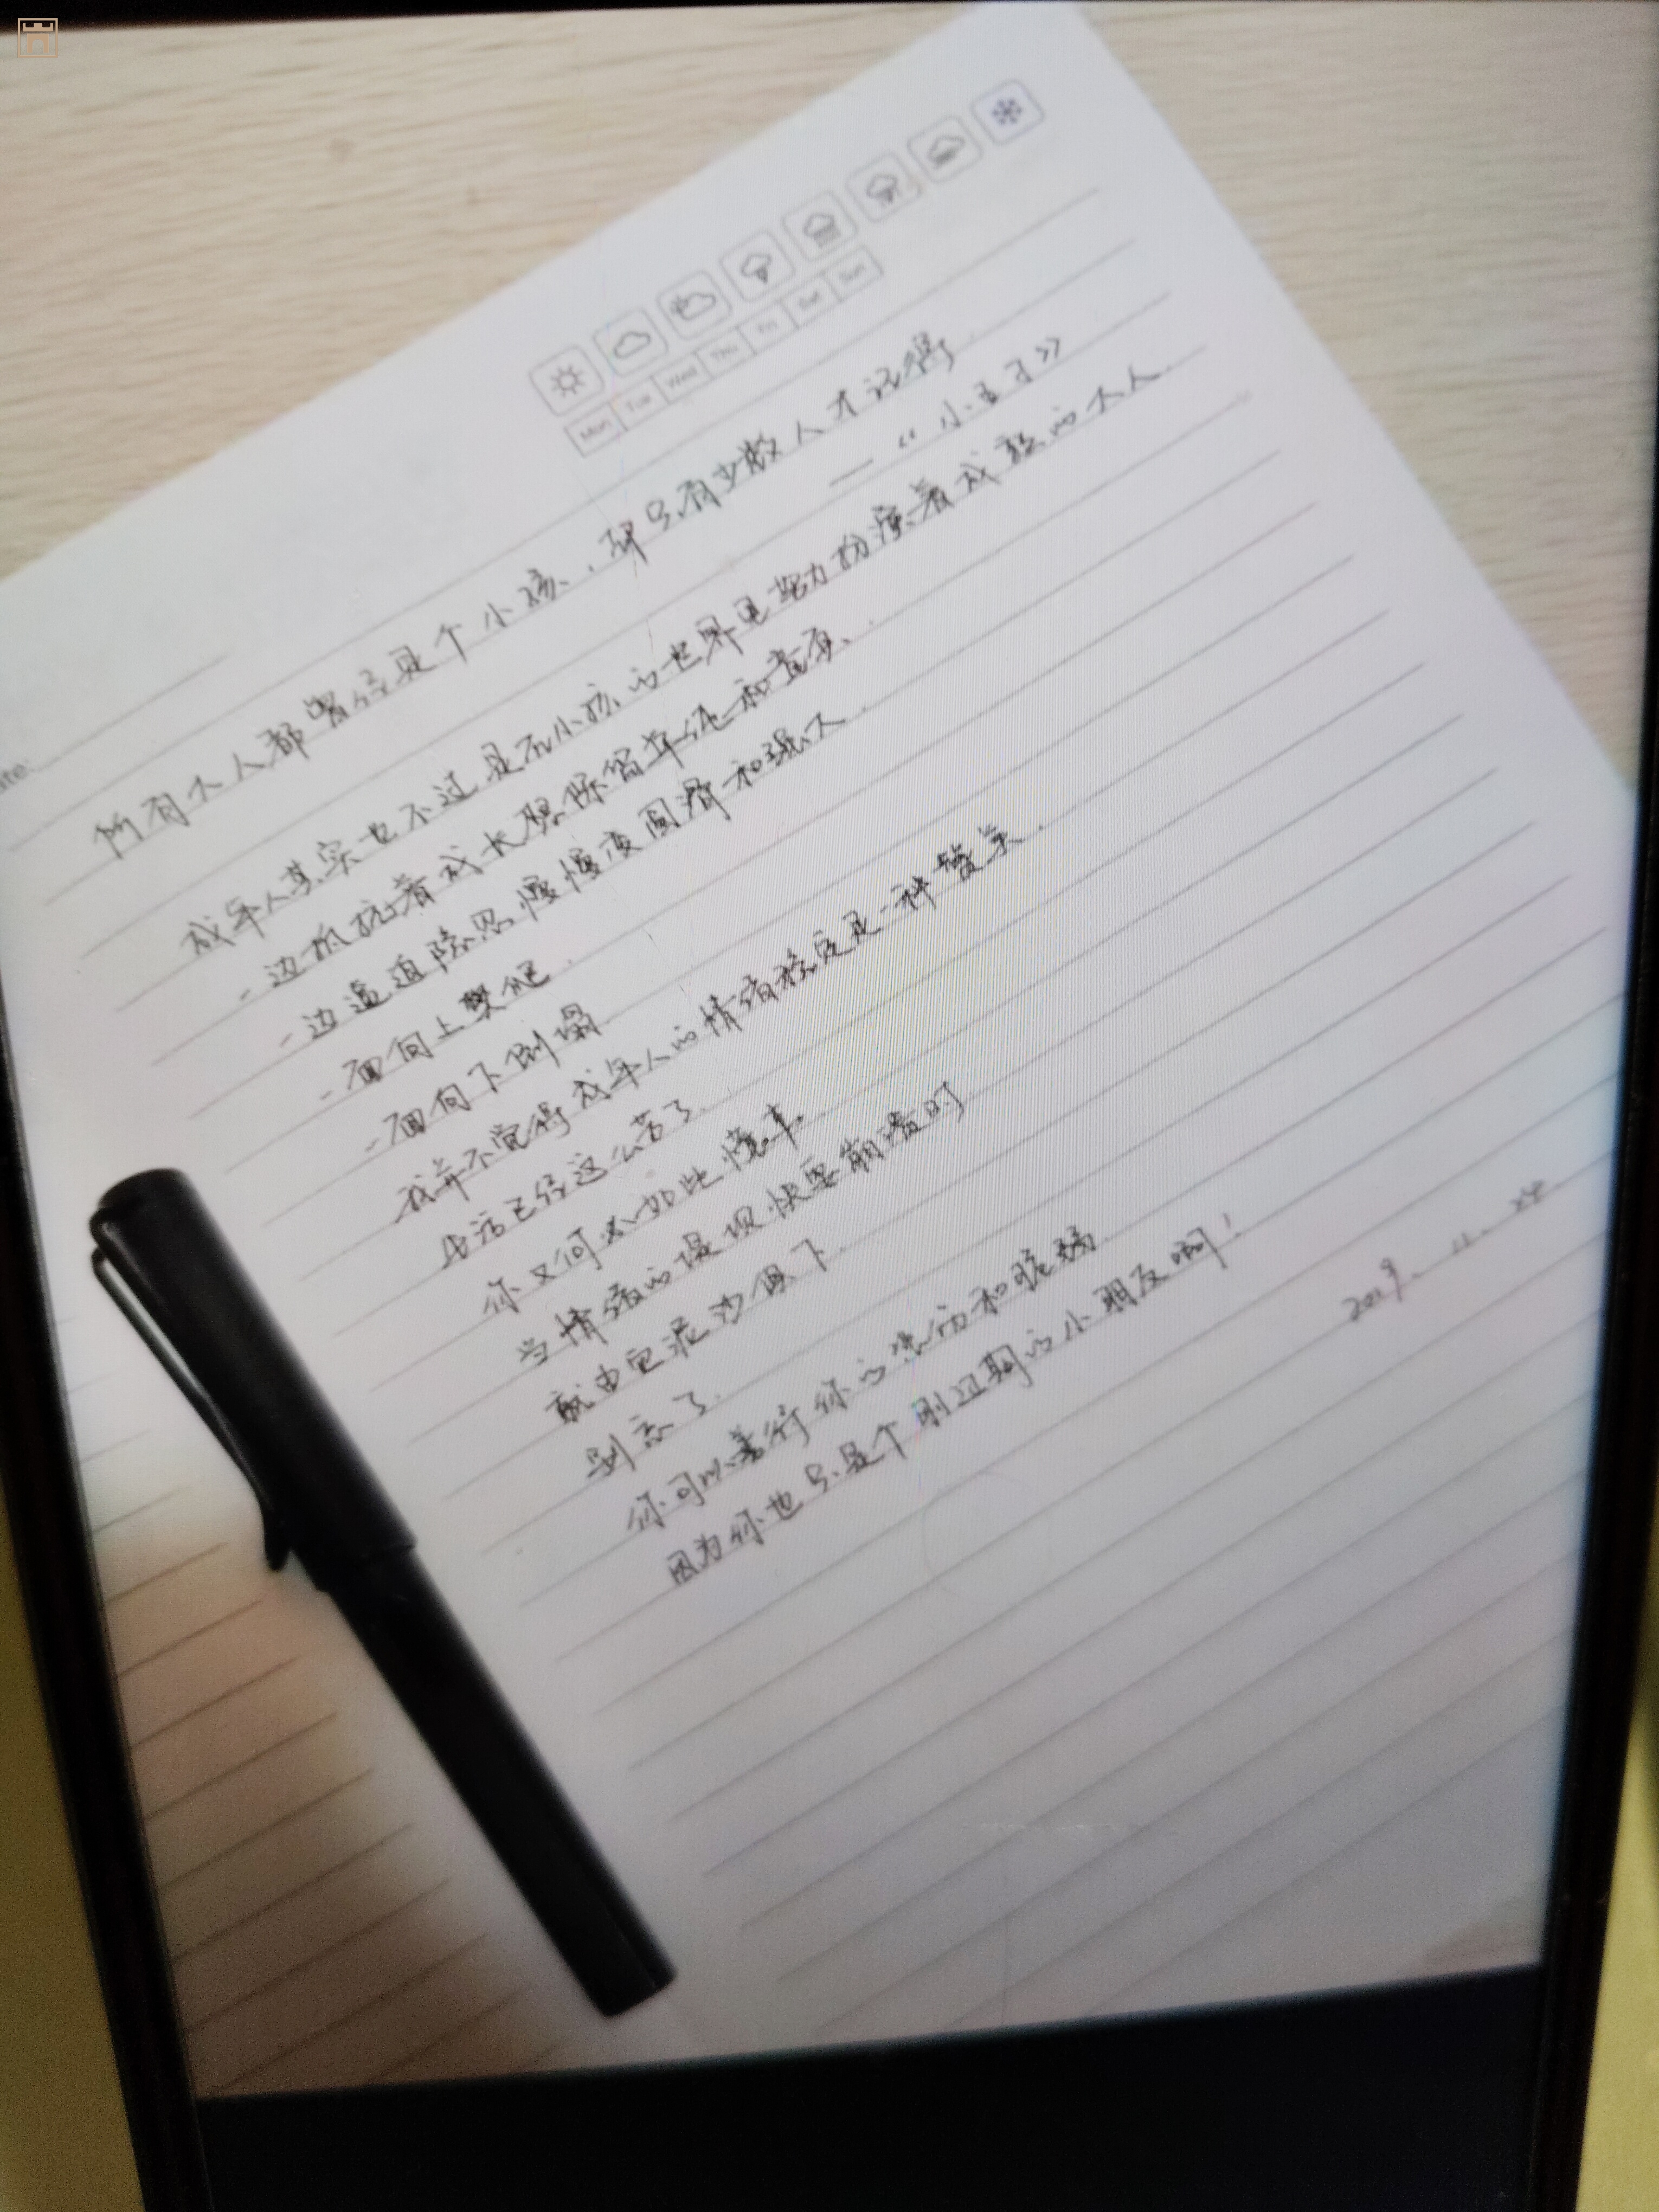 Mon Tue Wed Thu Fri Sat Sun
所有大人都曾经是个小孩,却只有少数人才记得.
——《小王子》
成年人其实也不过是在小孩的世界里努力扮演着成熟的大人.
一边抵抗着成长想保留单纯和童真.
一边逼迫隐忍慢慢变圆滑和强大.
一面向上攀爬.
一面向下倒塌.
我并不觉得成年人的情绪稳定是一种赞美.
生活已经这么苦了.
你又何必如此懂事.
当情绪的堤坝快要崩溃时
就由它泥沙俱下.
别忘了.
你可以善待你的
和脆弱.
因为你也只是个刚过期的小朋友啊!
2019. 11.